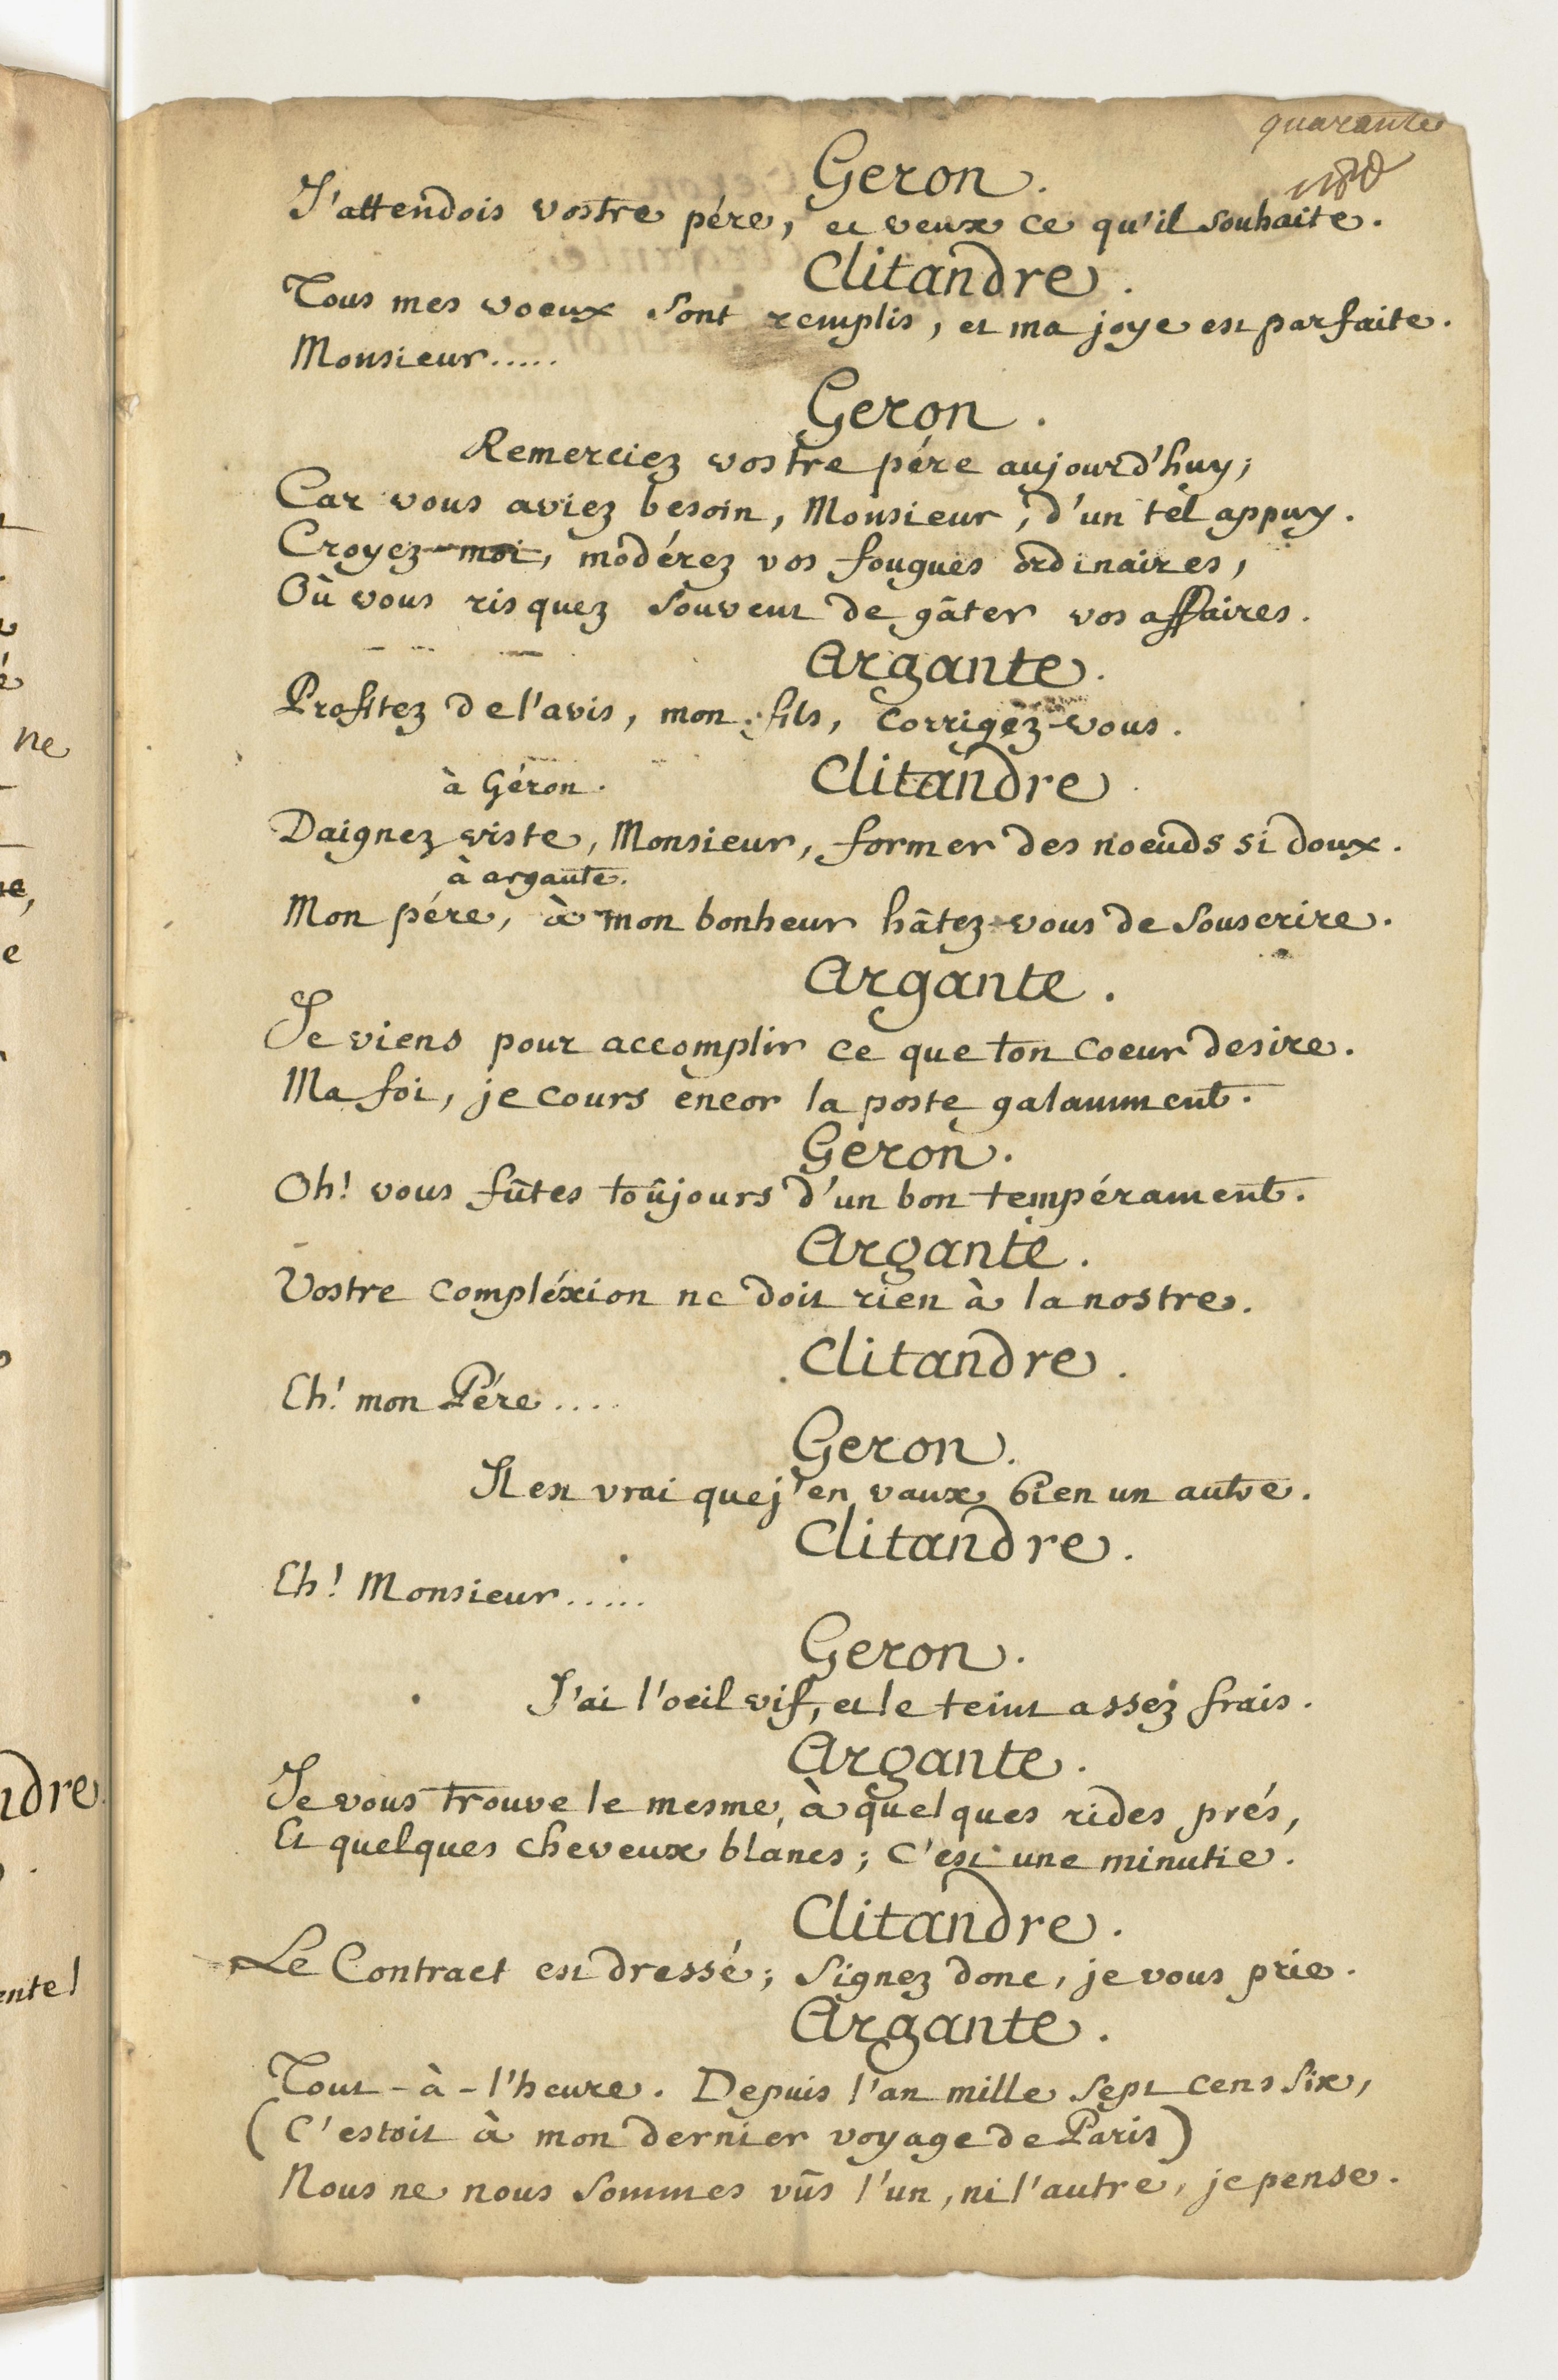 quarante
Geron.
J'attendois vostre pére, et veux ce qu'il souhaite.
Clitandre.
Tous mes voeux sont remplis, et ma joye est parfaite.
Monsieur.....
Geron.
Remerciez vostre pére aujourd'huy;
Car vous aviez besoin, Monsieur, d'un tel appuy.
Croyez-moi, modérez vos fougues ordinaires,
Où vous risquez souvent de gâter vos affaires.
Argante.
Profitez de l'avis, mon fils, corrigez-vous.
à Géron. Clitandre.
Daignez viste, Monsieur, former des noeuds si doux.
à argante.
Mon pére, à mon bonheur hâtez-vous de souscrire.
Argante.
Je viens pour accomplir ce que ton coeur desire.
Ma foi, je cours encor la poste galamment.
Geron.
Oh! vous fûtes toûjours d'un bon tempérament.
Argante.
Vostre compléxion ne doit rien à la nostre.
Clitandre.
Eh! mon Pére....
Geron.
Il est vrai que j'en vaux bien un autre.
Clitandre.
Eh! Monsieur.....
Geron.
J'ai l'oeil vif, et le teint assez frais.
Argante.
Je vous trouve le mesme, à quelques rides prés,
Et quelques cheveux blancs; c'est une minutie.
Clitandre.
Le Contract est dressé; signez donc, je vous prie.
Argante.
Tout-à-l'heure. Depuis l'an mille sept cens six,
(C'estoit à mon dernier voyage de Paris)
Nous ne nous sommes vûs l'un, ni l'autre, je pense.